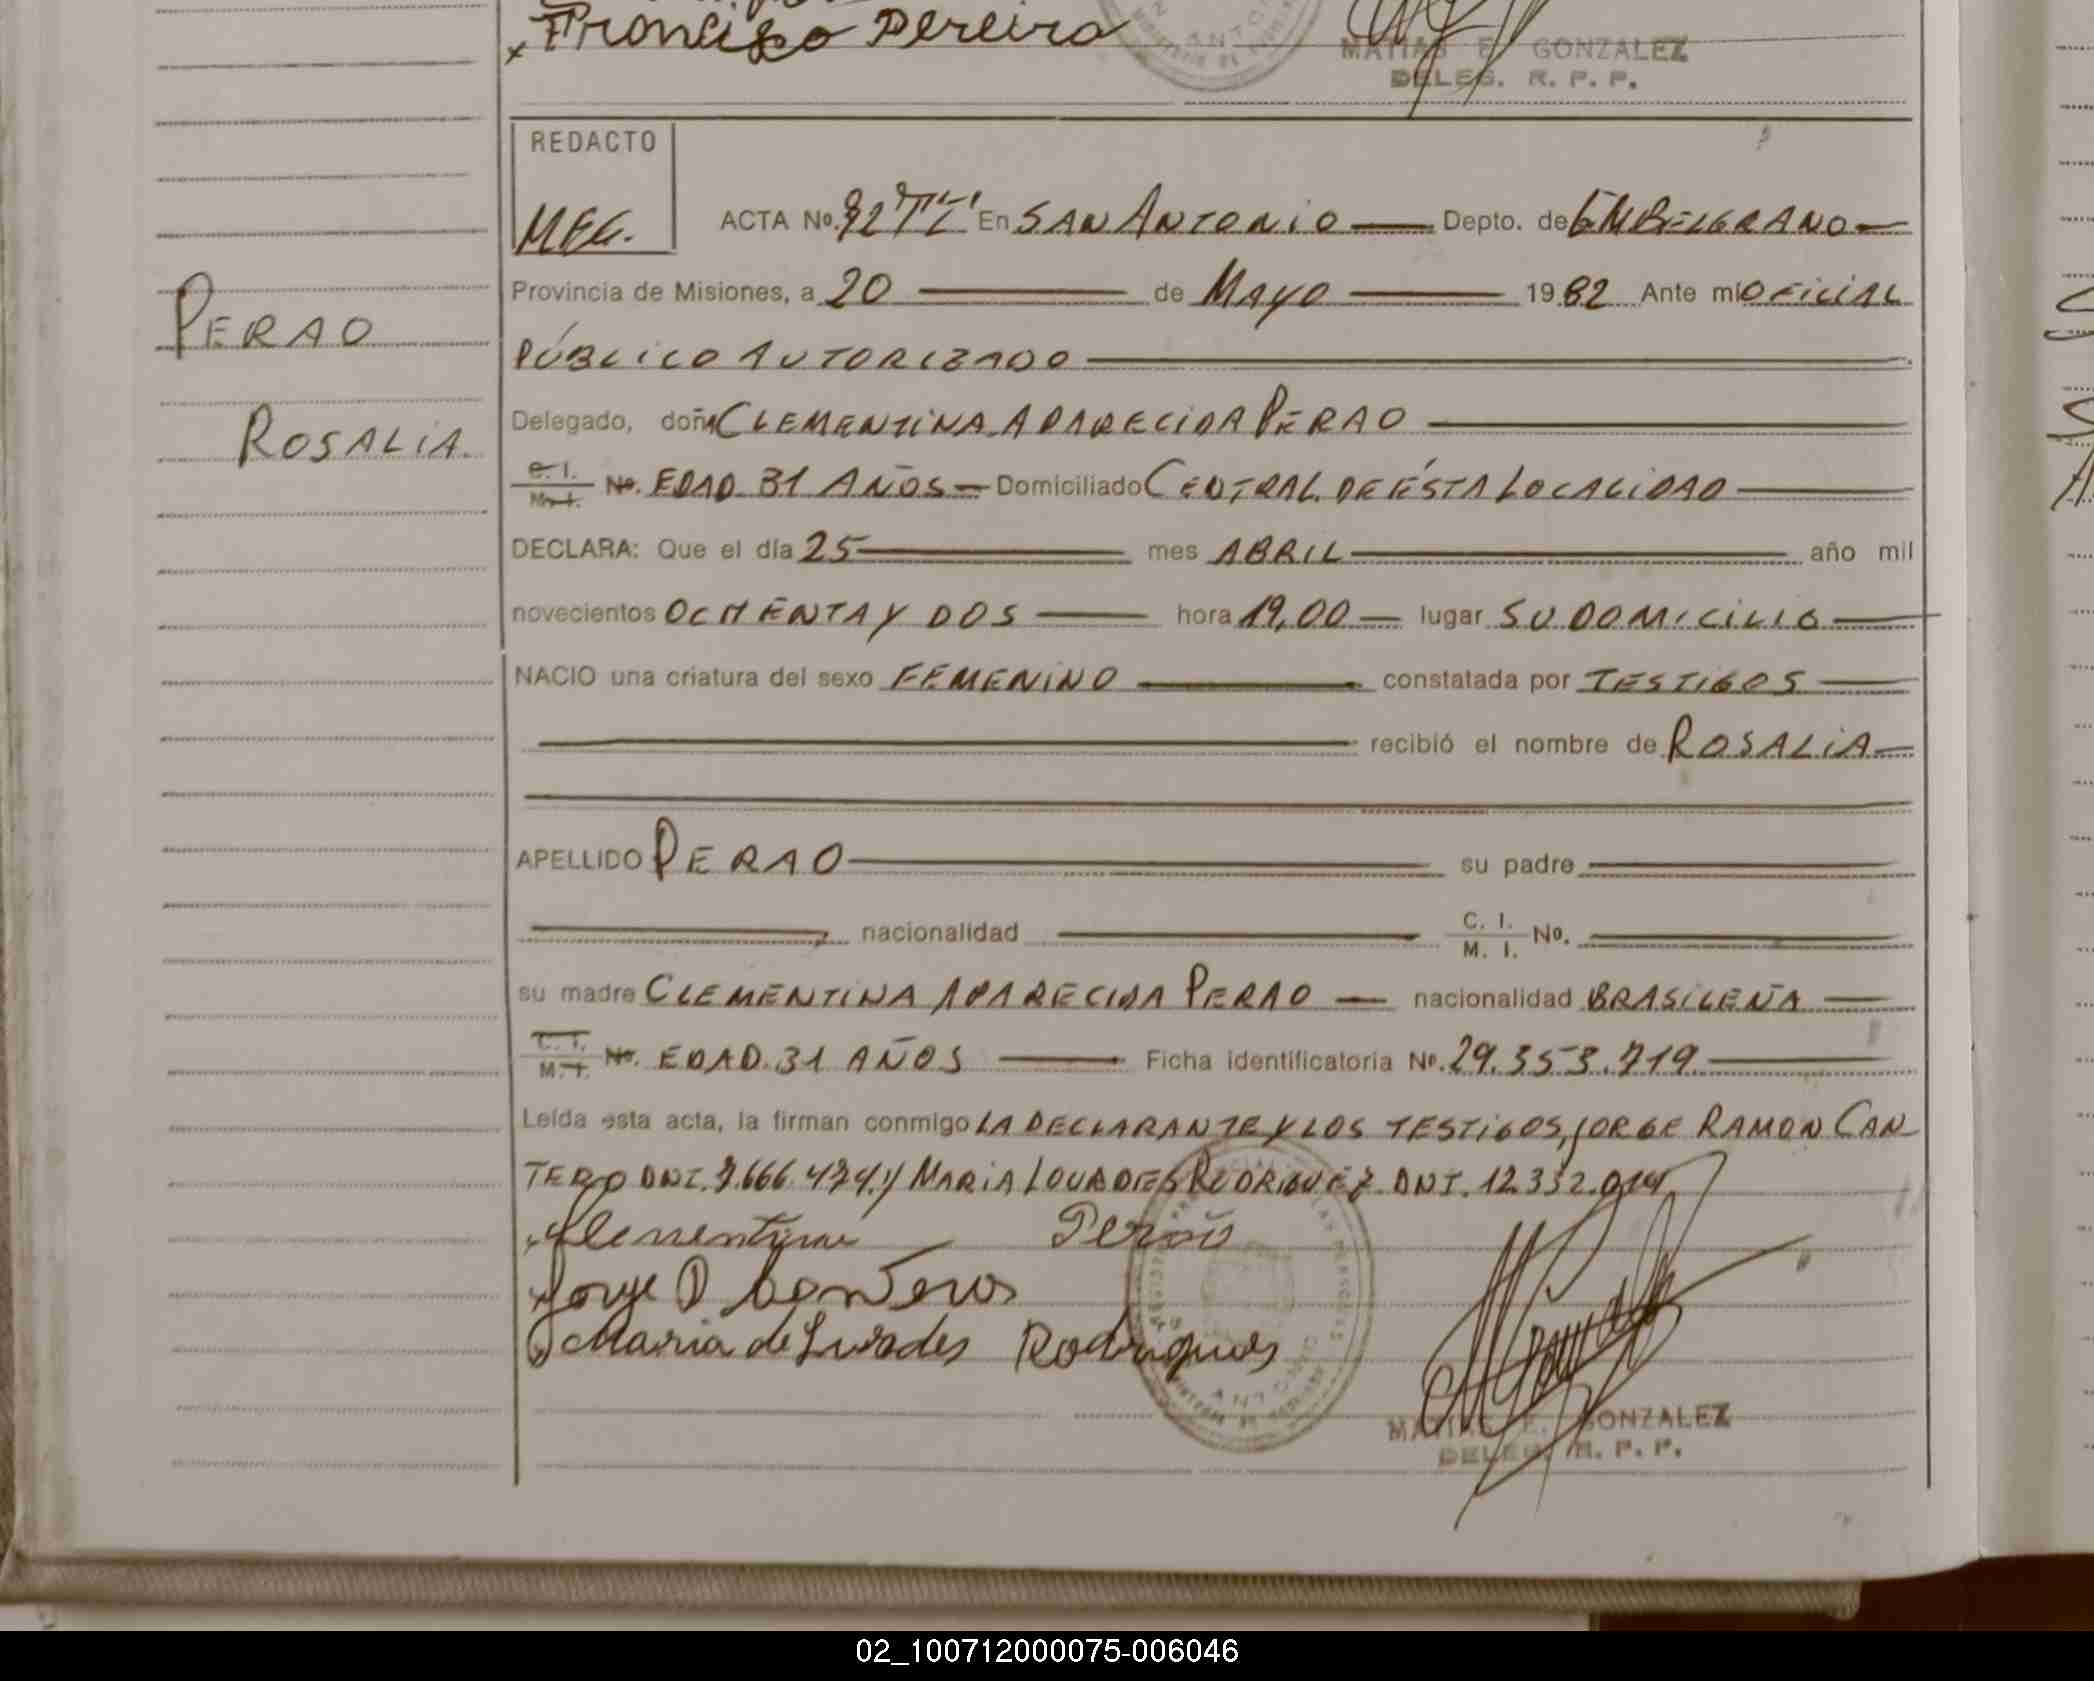 Francisco Pereira
MATIAS E. GONZALEZ
DELEG. R. P. P.
REDACTO
MEG.
ACTA Nº. 92 TºI En SAN ANTONIO Depto. de GM BELGRANO
Provincia de Misiones, a 20 de MAYO 1982 Ante mi OFICIAL
PÚBLICO AUTORIZADO
PERAO
ROSALIA.
Delegado, doña CLEMENTINA APARECIDA PERAO
C. I.
M. I. Nº. EDAD 31 AÑOS Domiciliado CENTRAL DE ÉSTA LOCALIDAD
DECLARA: Que el día 25 mes ABRIL año mil
novecientos OCHENTA Y DOS hora 19,00 lugar SU DOMICILIO
NACIO una criatura del sexo FEMENINO constatada por TESTIGOS
recibió el nombre de ROSALIA
APELLIDO PERAO su padre
nacionalidad C. I.
M. I. Nº.
su madre CLEMENTINA APARECIDA PERAO nacionalidad BRASILEÑA
C. I.
M. I. Nº. EDAD. 31 AÑOS Ficha identificatoria Nº. 29.353.719.
Leída esta acta, la firman conmigo LA DECLARANTE Y LOS TESTIGOS, JORGE RAMON CAN
TERO DNI. 7.666.474. y MARIA LOURDES RODRIGUEZ DNI. 12.332.014
Clementina Perao
Jorge R Canteros
Maria de Lurdes Rodrigues
SAN ANTONIO
MATIAS E. GONZALEZ
DELEG. R. P. P.
02_100712000075-006046